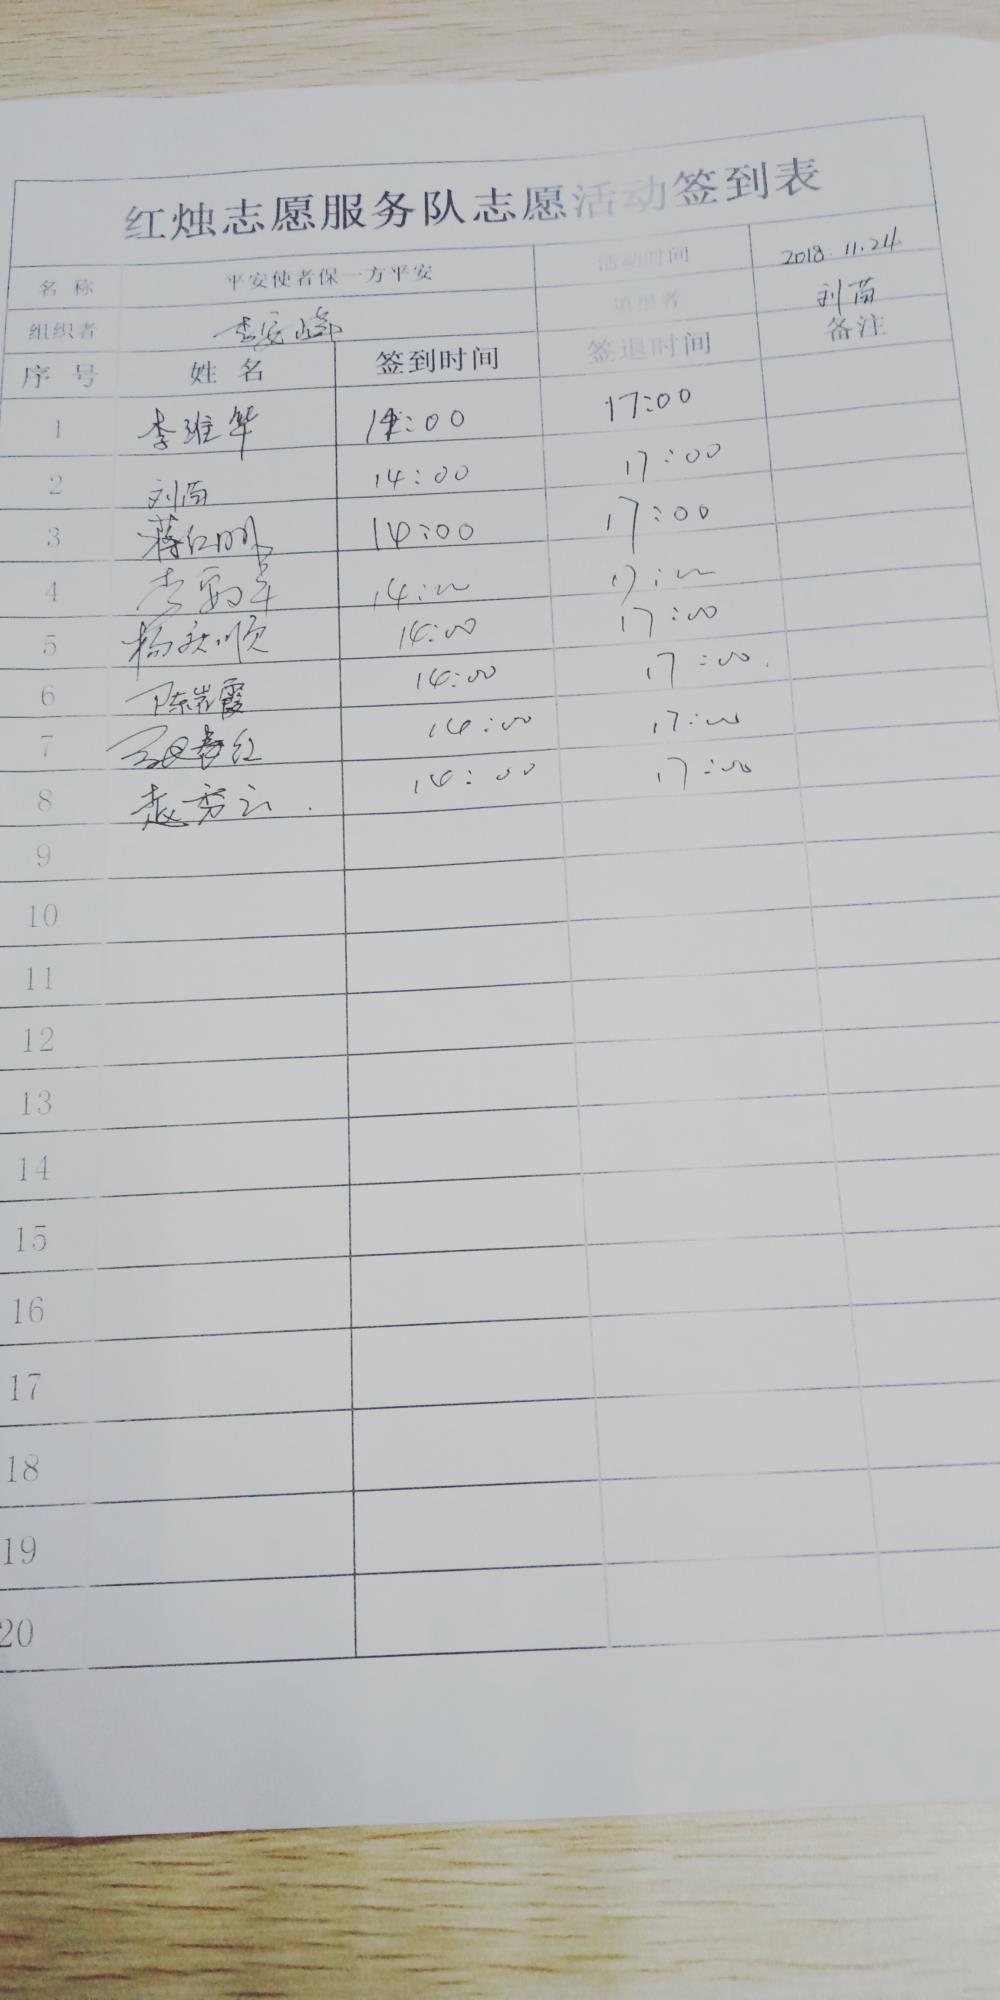 红烛志愿服务队志愿活动签到表
名 称 平安使者保一方平安 活动时间 2018.11.24
组织者 填报者 刘苗
序 号 姓 名 签到时间 签退时间 备注
1 李维华 14:00 17:00
2 刘苗 14:00 17:00
3 蒋红明 14:00 17:00
4 14:00 17:00
5 杨秋顺 14:00 17:00
6 陈岩霞 14:00 17:00
7 14:00 17:00
8 赵秀云 14:00 17:00
9
10
11
12
13
14
15
16
17
18
19
20